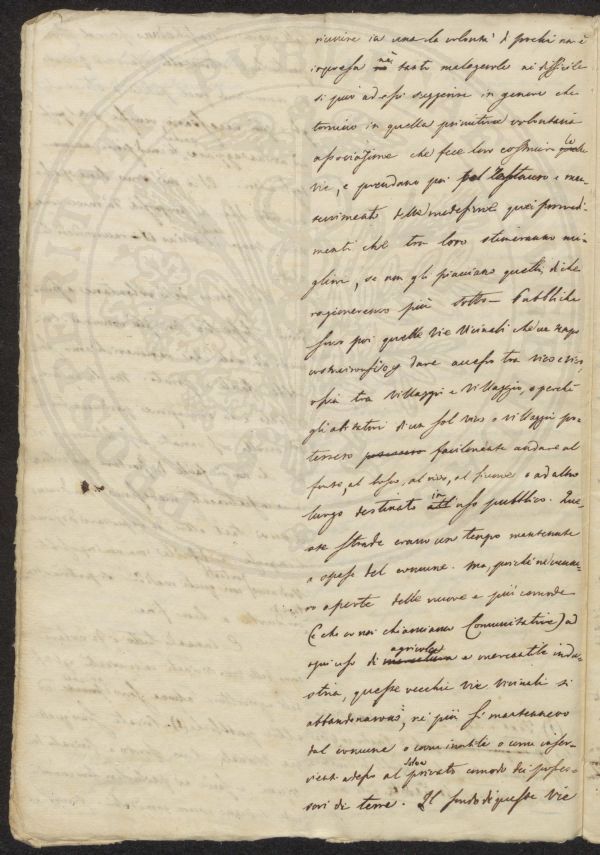 riunire in una la volontà di pochi non è
impresa nè tanto malagevole nè difficile
si può ad essi suggerire in genere che
tornino in quella primitiva volontaria
associazione che fece loro costruire le
vie, e prendano pel restauro e man-
tenimento delle medesime quei provvedi-
menti che tra loro stimeranno mi-
gliori, se non gli piacciano quelli, di che
ragioneremo più sotto — Pubbliche
sono poi quelle vie vicinali che un tempo
costruironsi o p dare accesso tra vico e vico,
ossia tra villaggio e villaggio, o perchè
gli abitatori di un sol vico o villaggio po-
tessero facilmente andare al
fonte, al bosco, al rivo, al fiume o ad altro
luogo destinato in uso pubblico. Que-
ste strade erano un tempo mantenute
a spese del comune. Ma, poichè ne venne-
ro aperte delle nuove e più comode
(e che or noi chiamiamo Comunitative) ad
ogni uso di agricola e mercantile indu-
stria, queste vecchie vie vicinali si
abbandonarono, nè più si mantennero
dal comune o come inutili o come inser-
vienti adesso al solo privato comodo dei posses-
sori di terre. Il fondo di queste vie